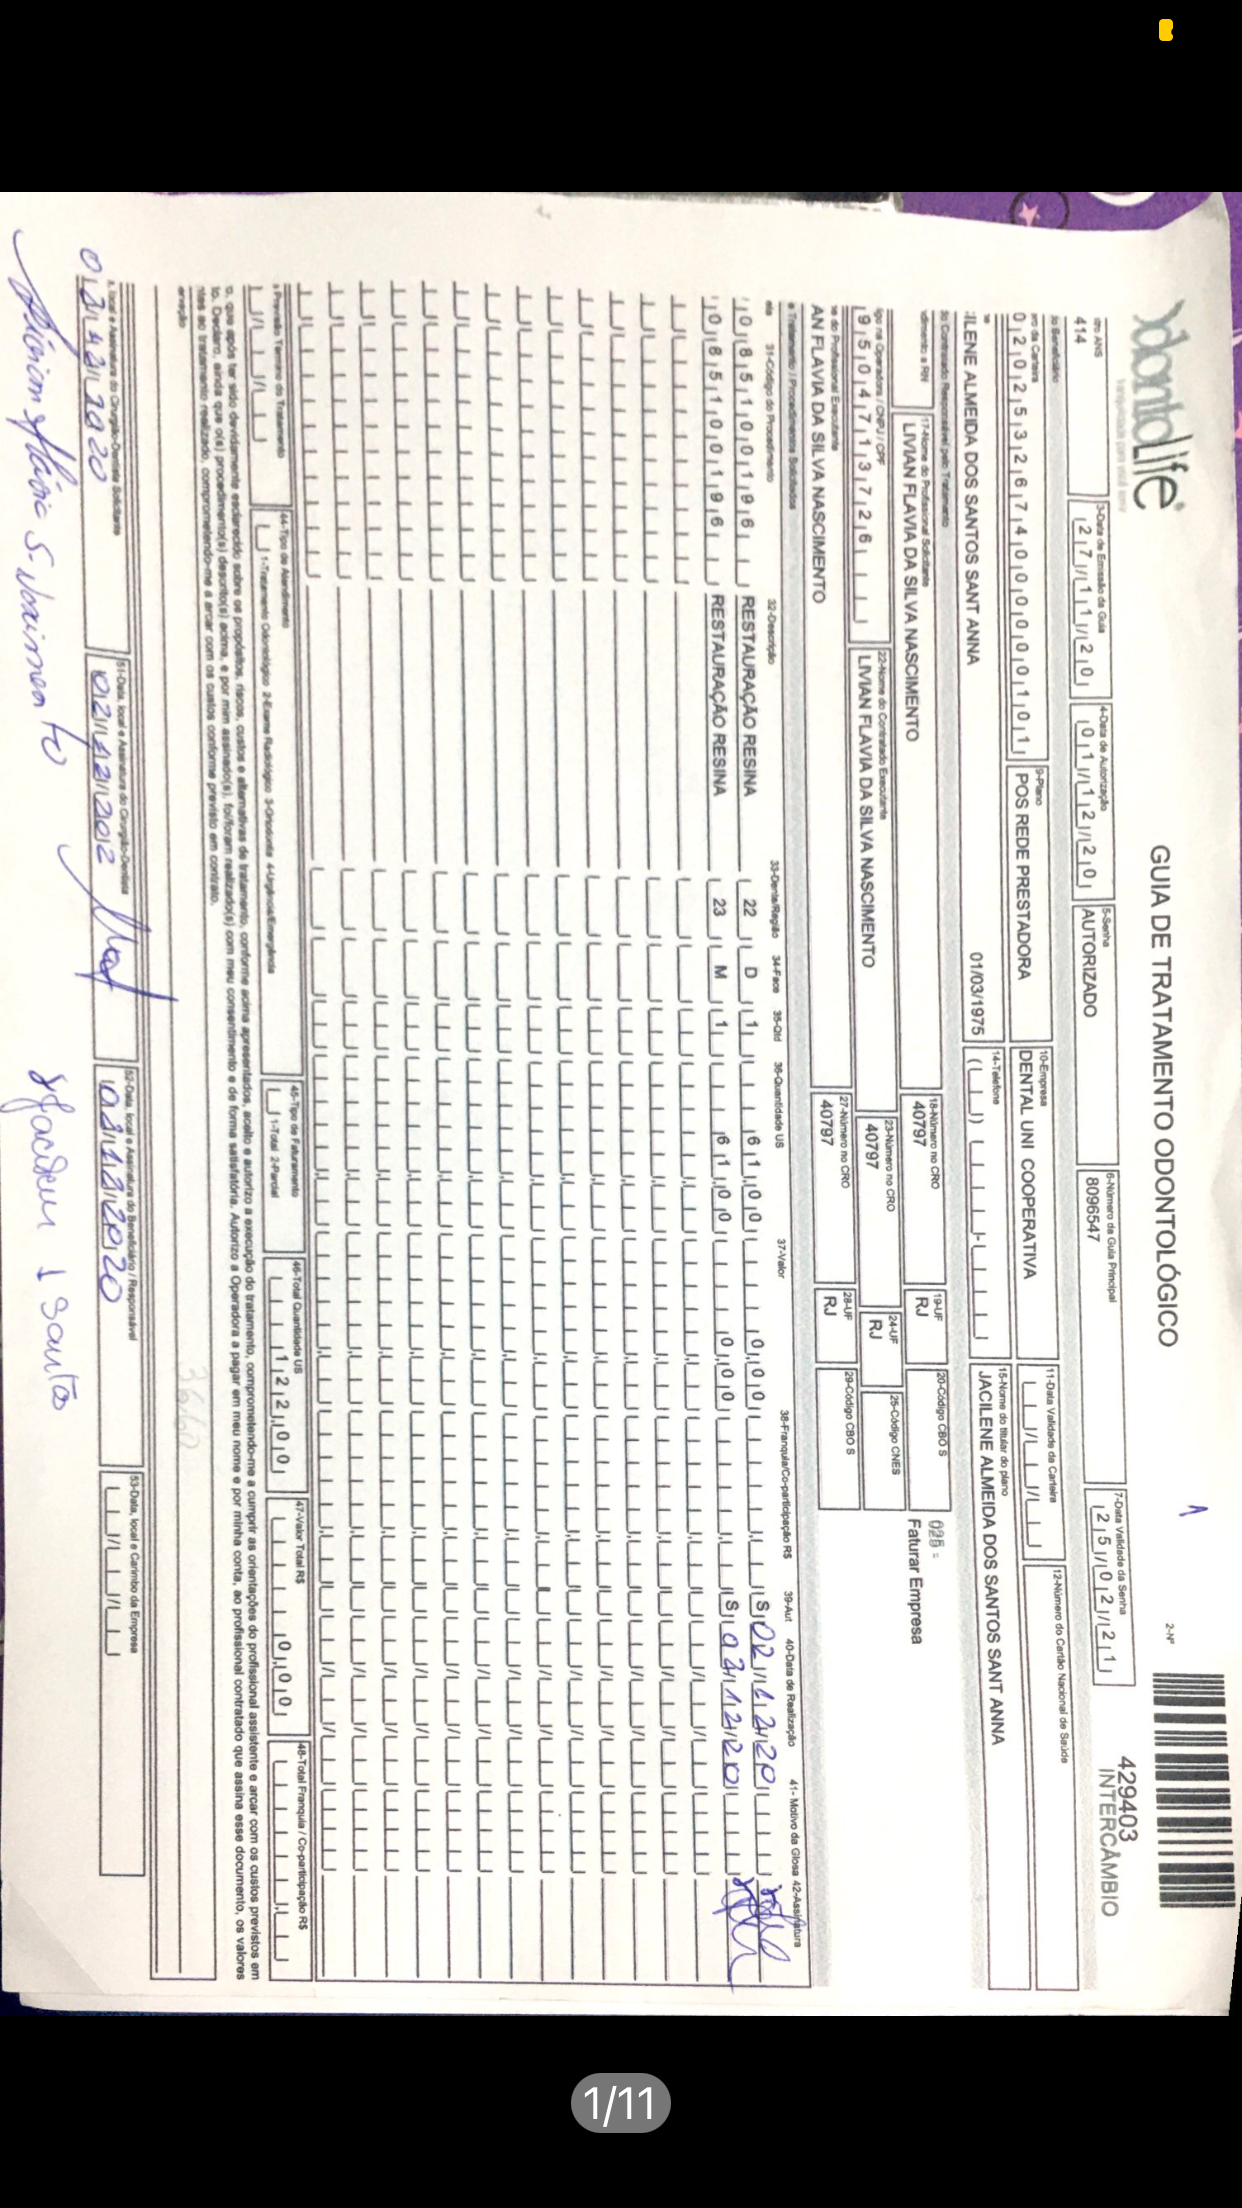 odontolife
tranquilidade para você sorrir
GUIA DE TRATAMENTO ODONTOLÓGICO
1
2-Nº
429403
INTERCÂMBIO
tro ANS
414
3-Data de Emissão da Guia
27/11/20
4-Data de Autorização
01/12/20
5-Senha
AUTORIZADO
6-Número da Guia Principal
8096547
7-Data Validade da Senha
25/02/21
do Beneficiário
ro da Carteira
02025326740000000101
9-Plano
POS REDE PRESTADORA
10-Empresa
DENTAL UNI COOPERATIVA
11-Data Validade da Carteira
12-Número do Cartão Nacional de Saúde
ILENE ALMEIDA DOS SANTOS SANT ANNA
01/03/1975
14-Telefone
15-Nome do titular do plano
JACILENE ALMEIDA DOS SANTOS SANT ANNA
do Contratado Responsável pelo Tratamento
dimento a RN
17-Nome do Profissional Solicitante
LIVIAN FLAVIA DA SILVA NASCIMENTO
18-Número no CRO
40797
19-UF
RJ
20-Código CBO S
025 -
Faturar Empresa
igo na Operadora / CNPJ / CPF
9504713726
22-Nome do Contratado Executante
LIVIAN FLAVIA DA SILVA NASCIMENTO
23-Número no CRO
40797
24-UF
RJ
25-Código CNES
ne do Profissional Executante
AN FLAVIA DA SILVA NASCIMENTO
27-Número no CRO
40797
28-UF
RJ
29-Código CBO S
e Tratamento / Procedimentos Solicitados
ela 31-Código do Procedimento 32-Descrição 33-Dente/Região 34-Face 35-Qtd 36-Quantidade US 37-Valor 38-Franquia/Co-participação R$ 39-Aut 40-Data de Realização 41- Motivo da Glosa 42-Assinatura
085100196 RESTAURAÇÃO RESINA 22 D 1 61,00 0,00 S 02/12/20
085100196 RESTAURAÇÃO RESINA 23 M 1 61,00 0,00 S 02/12/20
a Previsão Termino do Tratamento
44-Tipo de Atendimento
1-Tratamento Odontológico 2-Exame Radiológico 3-Ortodontia 4-Urgência/Emergência
45-Tipo de Faturamento
1-Total 2-Parcial
46-Total Quantidade US
122,00
47-Valor Total R$
0,00
48-Total Franquia / Co-participação R$
o, que após ter sido devidamente esclarecido sobre os propósitos, riscos, custos e alternativas de tratamento, conforme acima apresentados, aceito e autorizo a execução do tratamento, comprometendo-me a cumprir as orientações do profissional assistente e arcar com os custos previstos em
to. Declaro, ainda que o(s) procedimento(s) descrito(s) acima, e por mim assinado(s), foi/foram realizado(s) com meu consentimento e de forma satisfatória. Autorizo a Operadora a pagar em meu nome e por minha conta, ao profissional contratado que assina esse documento, os valores
ntes ao tratamento realizado, comprometendo-me a arcar com os custos conforme previsto em contrato.
ervação
3660
a, local e Assinatura do Cirurgião-Dentista Solicitante
51-Data, local e Assinatura do Cirurgião-Dentista
52-Data, local e Assinatura do Beneficiário / Responsável
02/12/20
53-Data, local e Carimbo da Empresa
Livian Flávia S. Nascimento
1/11